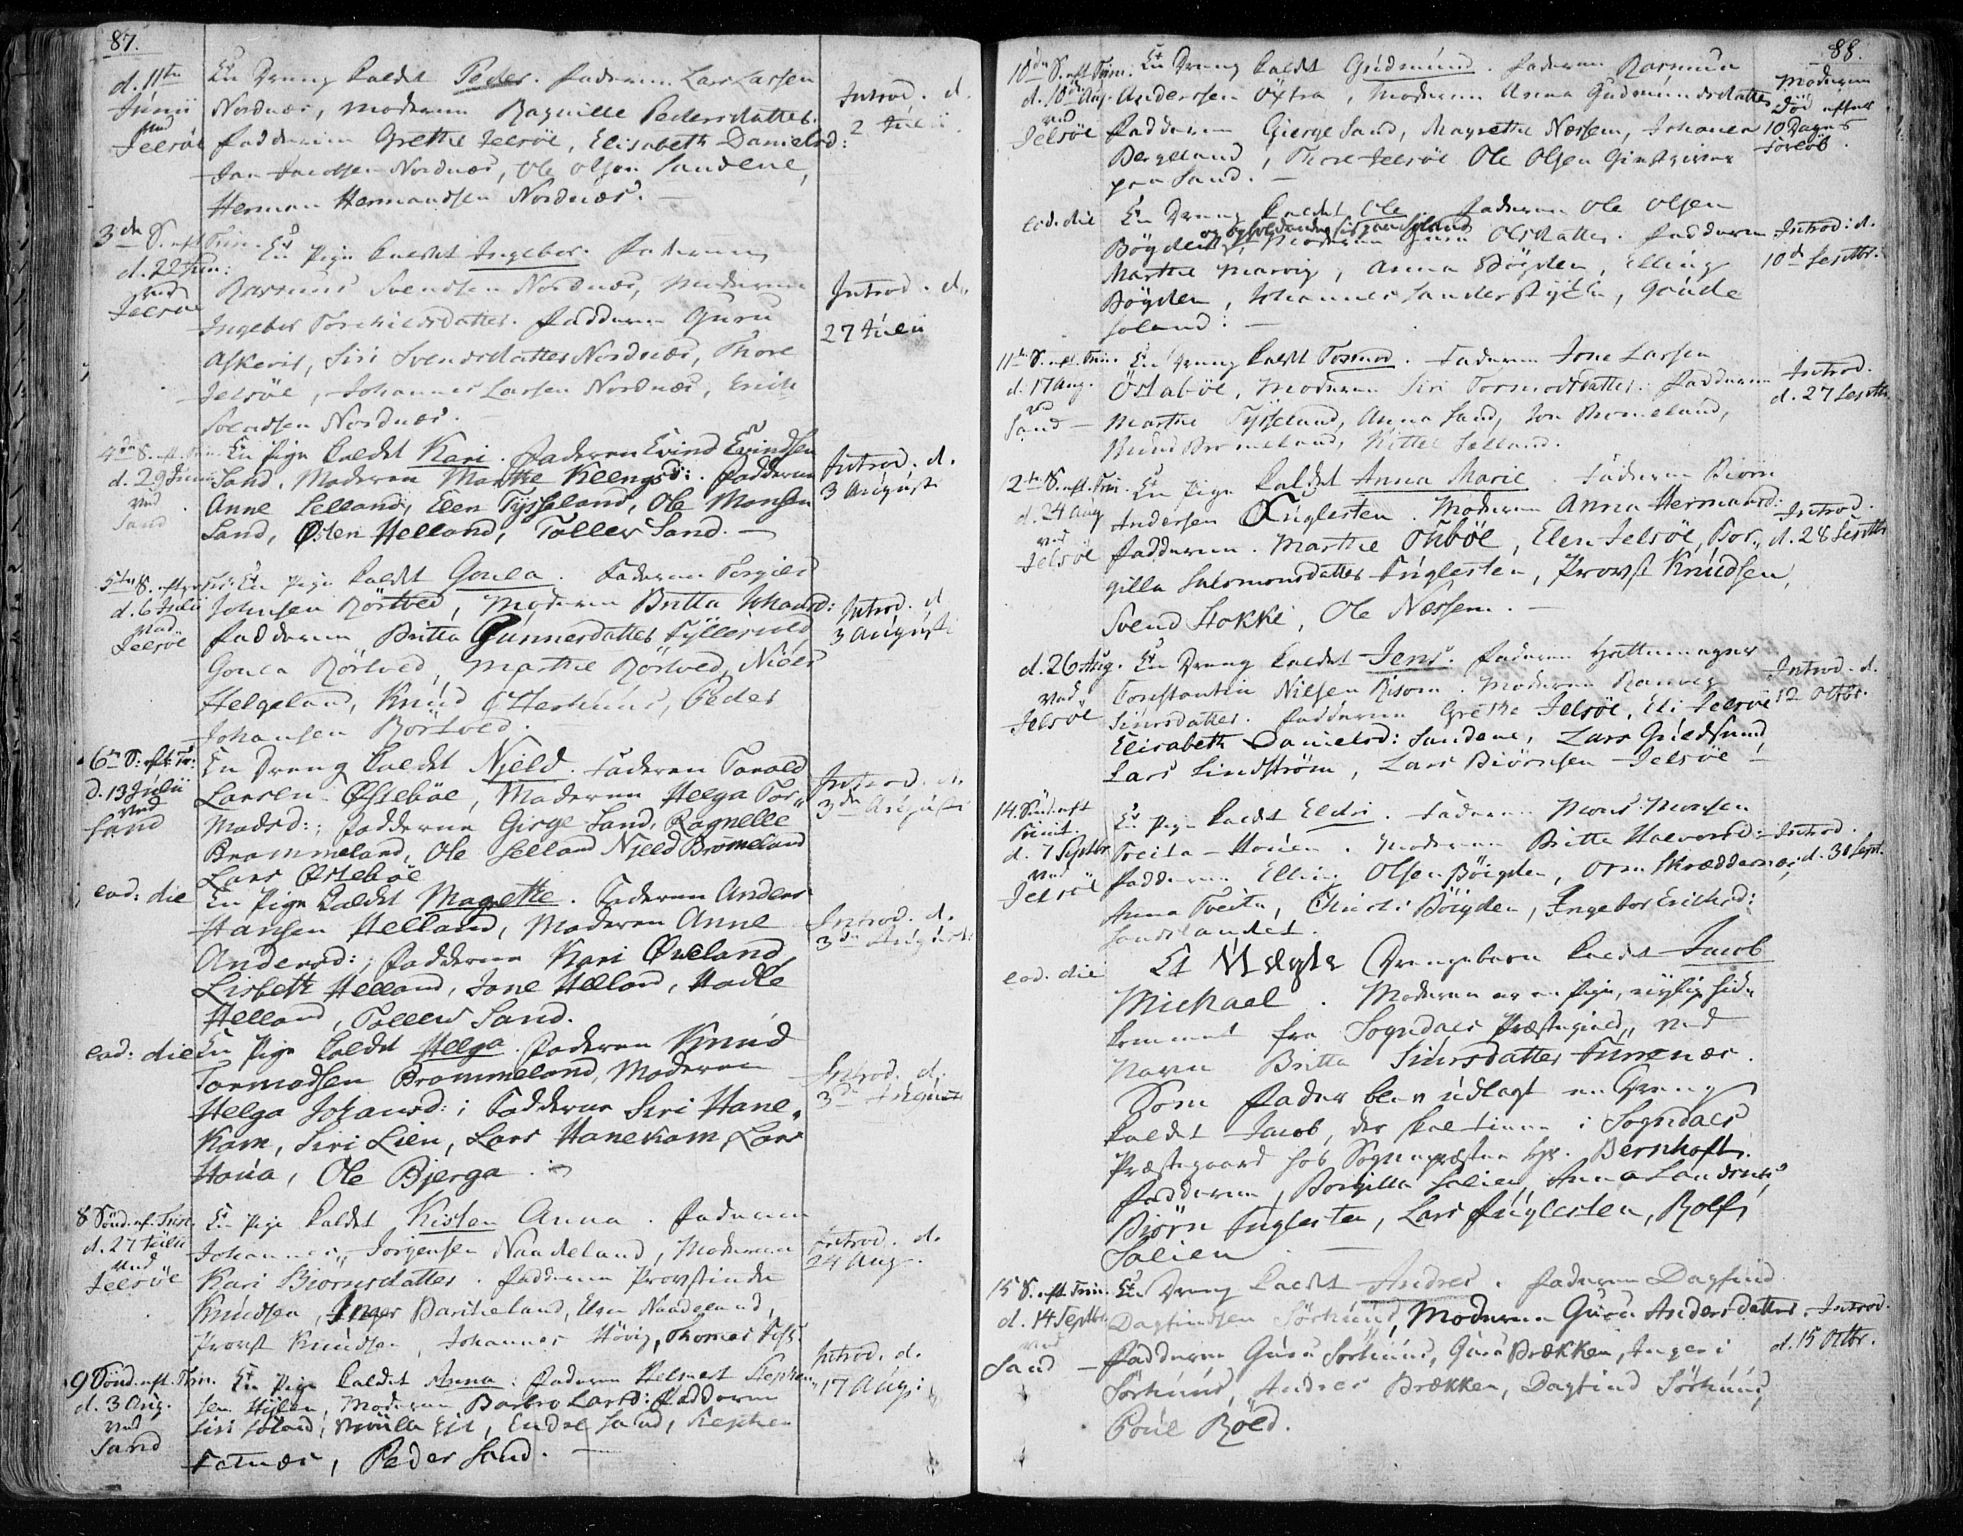 87.
d. 11te
Junii
ved
Jelsöe
En Dreng kaldet Peder. Faderen Lars Larsen
Nordnæs, Moderen Ragnille Pedersdatter.
Fadderne Grethe Jelsöe, Elisabeth Danielsd:
Jan Jacobsen Nordnæs, Ole Olsen Sandene,
Herman Hermandsen Nordnæs. —
Introd. d.
2 Julii.
3de S. eft Trin.
d. 22 Jun:
ved
Jelsöe
En Pige kaldet Ingebor. Faderen
Rasmus Svendsen Nordnæs, Moderen
Ingebor Torchildsdatter. Fadderne Guru
Askevig, Siri Svendsdatter Nordnæs, Thore
Jelsöe, Johannes Larsen Nordnæs, Erich
Svendsen Nordnæs.
Introd. d.
27 Julii
4de S. eft Trin.
d. 29 Junii
ved
Sand
En Pige kaldet Kari. Faderen Evind Evindsen
Sand, Moderen Marthe Klengsd:. Fadderne
Anne Selland, Elen Tysseland, Ole Monsen
Sand, Östen Helland, Tollev Sand. —
Introd. d.
3 Augusti
5te S. eft Tri:
d. 6 Julii
ved
Jelsöe
En Pige kaldet Goula. Faderen Torgiels
Johnsen Börtved, Moderen Britta Johansd:
Fadderne Britta Gunnersdatter
Goula Börtved, Marthe Börtved, Niels
Helgeland, Knud, Peder
Johansen Börtved.
Introd. d
3 Augusti
6te S: eft Tr:
d. 13 Julii
ved
Sand
En Dreng kaldet Njeld. Faderen Tarald
Larsen Östeböe, Moderen Helga Tor„
modsd:; Fadderne Girge Sand, Ragnelle
Brommeland, Ole Selland Njeld Brommeland
Lars Östeböe
Introd. d.
3de Augusti
eod: die
En Pige kaldet Magrethe. Faderen Anders
Hansen Helland, Moderen Anne
Andersd:; Fadderne Kari Öveland,
Lisbeth Helland, Jone Helland, Hadle
Helland, Tollev Sand.
Introd. d.
3de Augusti
eod: die
En Pige kaldet Helga. Faderen Knud
Tormodsen Brommeland, Moderen
Helga Johansd:; Fadderne Siri Hane„
kam, Siri Lien, Lars Hanekam, Lars
Houa, Ole Bjerga.
Introd. d.
3de Augusti
8 Sönd. ef. Trin.
d. 27 Julii
ved
Jelsöe
En Pige kaldet Kisten Anna. Faderen
Johannes Jorgensen Naadeland, Moderen
Kari Biörnsdatter. Fadderne Provstinde
Knudsen, Inger Baritzeland, Elen Naadeland,
Provst Knudsen, Johannes Hövig, Thomas
Introd. d.
24 Aug.
9 Sönd. eft. Trin.
d. 3 Aug.
ved
Sand
En Pige kaldet Anna. Faderen Helmest Stephen
sen Hylen, Moderen Barbro Larsd: Fadderne
Siri Söland, Eie, Endre Sand, Stephen
Fatnæs, Peder Sand. —
Introd. d.
17 Aug:
88.
10de S. eft Trin.
d. 10de Aug.
ved
Jelsöe
En Dreng kaldet Gudmund. Faderen Rasmus
Andersen Öxtra, Moderen Anna Gudmundsdatter
Fadderne Gierge Sand, Magrethe Næssem, Johanes
Bergeland, Thore Jelsöe Ole Olsen Giestgiver
paa Sand. —
Moderen
död efter
10 Dages
Forlöb.
eod. die
En Dreng kaldet Ole Faderen Ole Olsen
Bögden, Moderen Olsdatter. Fadderne
Marthe Marvig, Anna Bögden, Elling
Bögden, Johannes Sanderstycke, Goude
Soland: —
Introd: d.
10de Septbr:
11te S. eft. Trin.
d. 17 Aug.
ved
Sand —
En Dreng kaldet Tormod. Faderen Jone Larsen
Östaböe, Moderen Siri Tormodsdatter. Fadderne
Marthe Tysseland, Anna Sand, Jon Bromeland,
Bromeland, Kittel Selland.
Introd.
d. 27 Septbr.
2te S. eft. Trin.
d. 24 Aug
ved
Jelsöe
En Pige kaldet Anna Marie. Faderen Biörn
Andersen Fuglesten. Moderen Anna Hermansd:
Fadderne. Marthe Thböe, Elen Jelsöe, Bor„
gilla Salomonsdatter Fuglesten, Provst Knudsen,
Svend Stokke, Ole Næssem. —
Introd.
d. 28 Septbr
d. 26 Aug.
ved
Jelsöe
En Dreng kaldet Jens. Faderen Hattemager
Constantin Nilsen Risom. Moderen Ranveg
Siursdatter. Fadderne Grethe Jelsöe, Eli Jelsöe
Elisabeth Danielsd: Sandene, Lars Guldsund,
Lars Lindström, Lars Biörnsen Jelsöe —
Introd. d.
12 Octbr.
14. Sönd. eft
Trinit.
d. 7 Septbr
ved
Jelsöe
En Pige kaldet Eldri. Faderen Mons Monsen
Tveita-Houen. Moderen Britte Halvorsd:
Fadderne Elling Olsen Böigden, Orm Skreddernes,
Anna Tveita, Böigden, Ingebor Erichsd:
Sandslandet.
Introd.
d. 30 Sept.
eod. die
Et Uægte Drengebarn kaldt Jacob
Michael. Moderen er en Pige, nylig hid„
kommet fra Sogndals Præstegield, ved
Navn Britta Siursdatter Furenæs.
Som Fader blev udlagt en Dreng
kaldet Jacob, der skal tiene i Sogndals
Præstegaard hos Sognepræsten Hr. Bernhoft.
Fadderne, Borgilla Salien, Anna
Biörn Fuglesten, Lars Fuglesten, Rolf
Salien. —
15 S. eft Trin.
d. 14 Septbr.
ved
Sand —
En Dreng kaldet Andres. Faderen Dagfind
Dagfindsen Sörhuus, Moderen Guru Andersdatter
Fadderne Guru Sörhuus, Guru Brækken, Inger i
Sörhuus, Andres Brækken, Dagfind Sörhuus,
Poul Röed.
Introd.
d. 15 Octbr.